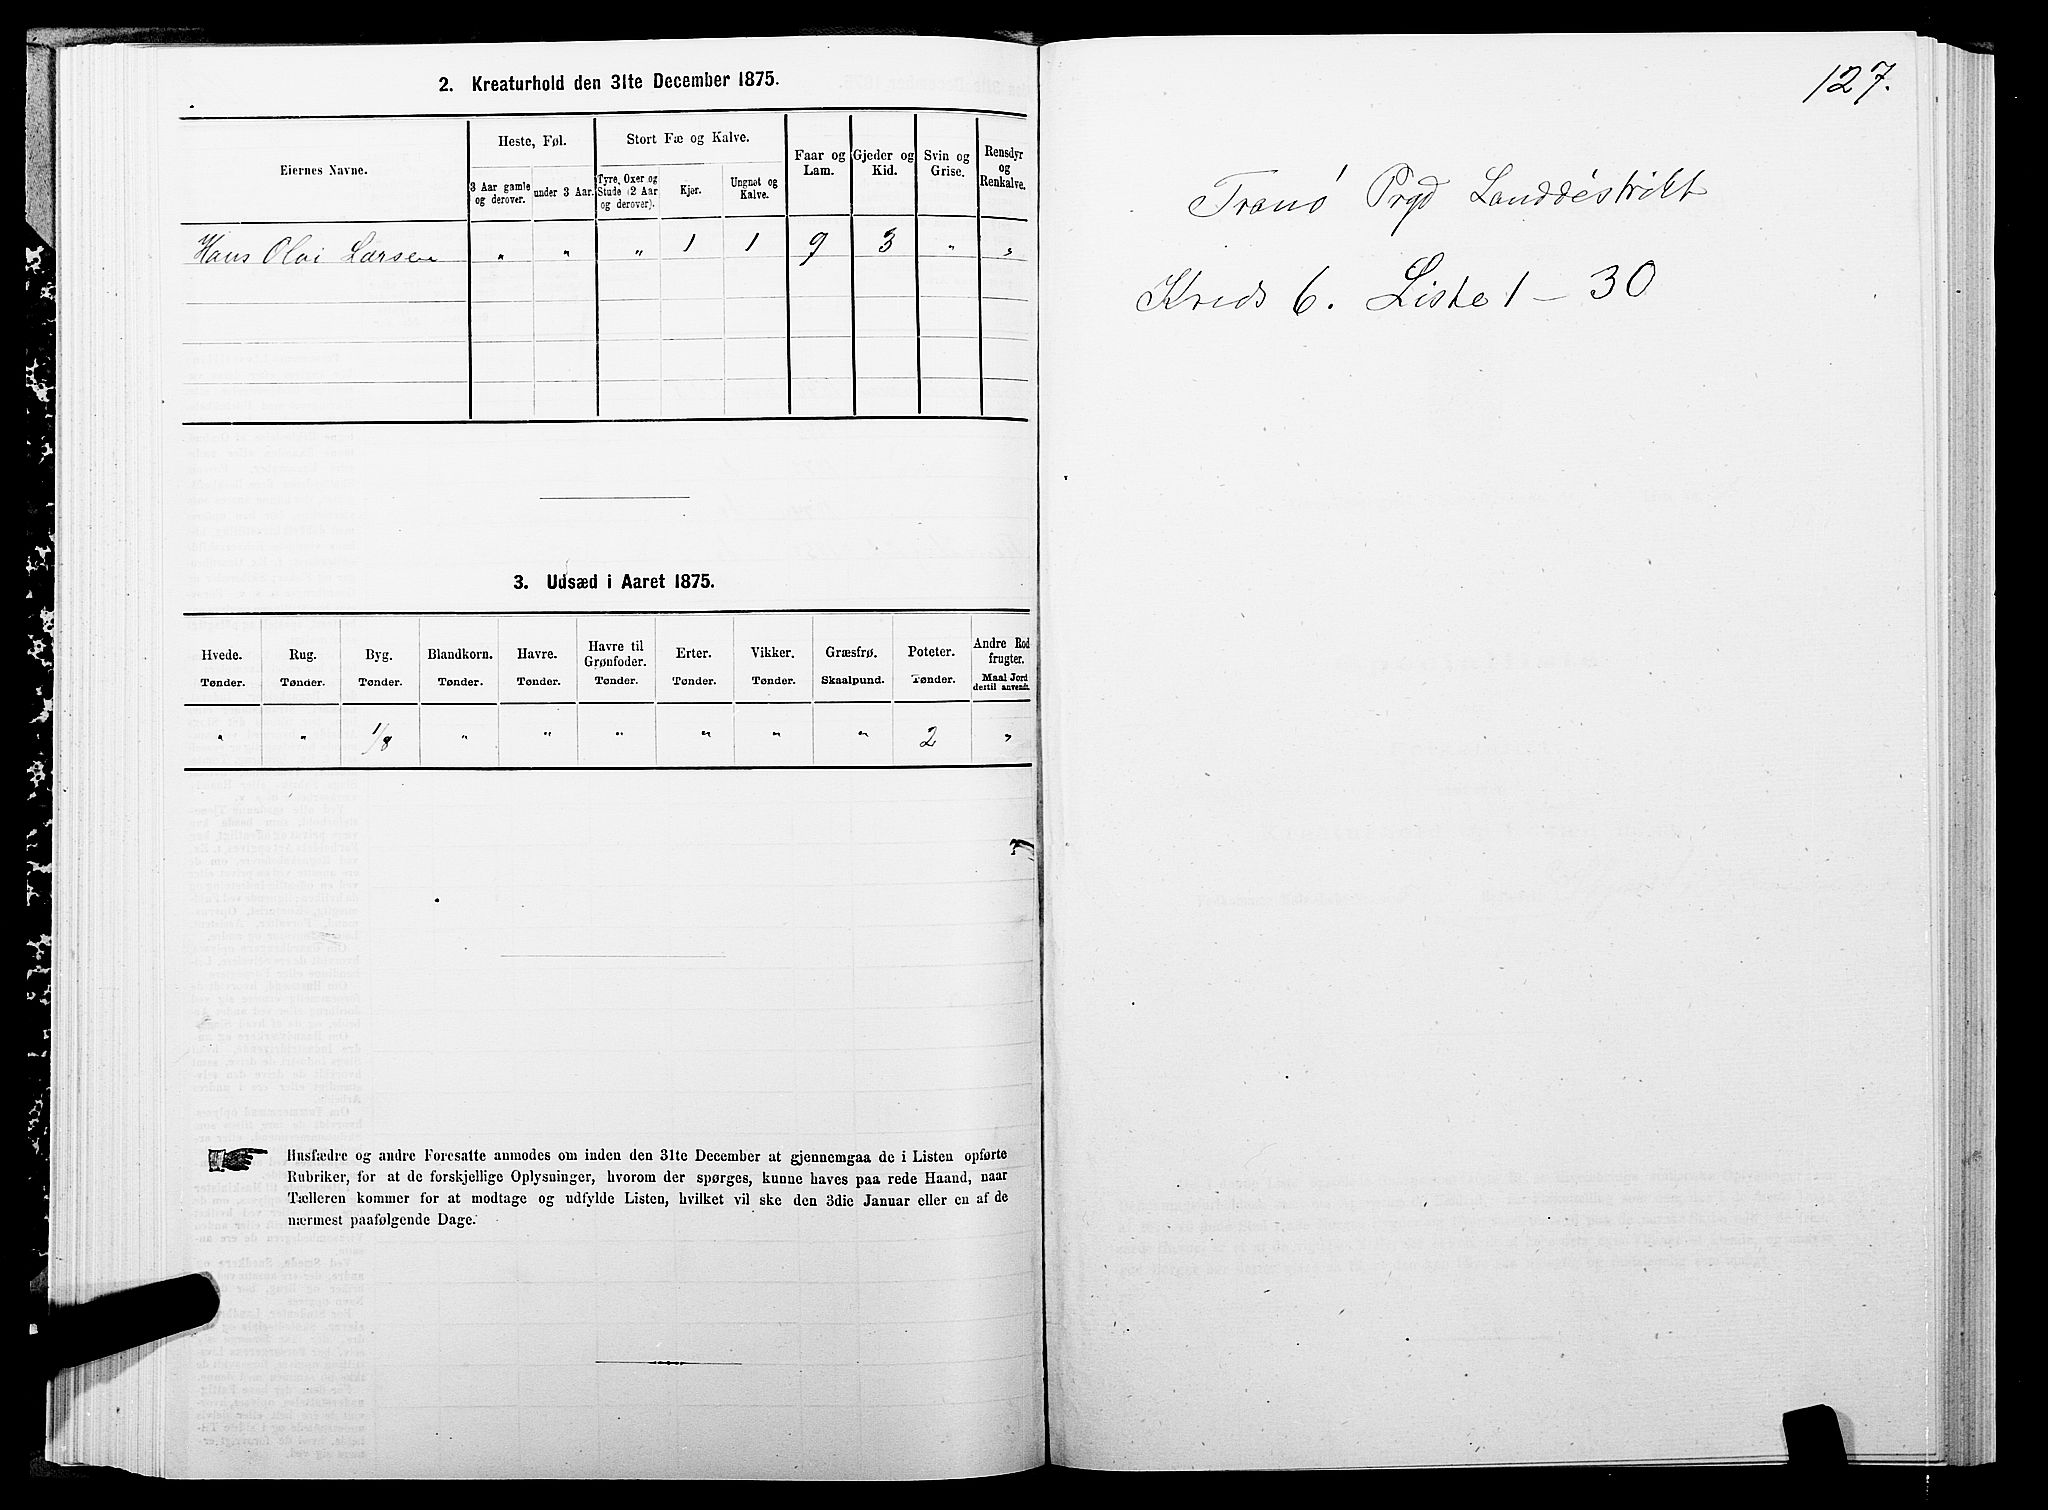 2. Kreaturhold den 31te December 1875.
Eiernes Navne.
Heste, Føl.
Stort Fæ og Kalve.
Faar og Lam.
Gjeder og Kid.
Svin og Grise.
Rensdyr og Renkalve.
3 Aar gamle og derover.
under 3 Aar.
Tyre, Oxer og Stude (2 Aar og derover).
Kjør.
Ungnøt og Kalve.
Hans Olai Larsen " " " 1 1 9 3 " "
3. Udsæd i Aaret 1875.
Hvede. Rug. Byg. Blandkorn. Havre. Havre til Grønfoder. Erter. Vikker. Græsfrø. Poteter. Andre Rodfrugter.
Tønder. Tønder. Tønder. Tønder. Tønder. Tønder. Tønder. Tønder. Skaalpund. Tønder. Maal Jord dertil anvendt.
" " 1/8 " " " " " " 2 "
Husfædre og andre Foresatte anmodes om inden den 31te December at gjennemgaa de i Listen opførte
Rubriker, for at de forskjellige Oplysninger, hvorom der spørges, kunne haves paa rede Haand, naar
Tælleren kommer for at modtage og udfylde Listen, hvilket vil ske den 3die Januar eller en af de
nærmest paafølgende Dage.
127.
Tranö Prgd Landdistrikt
Kreds 6. Liste 1 - 30